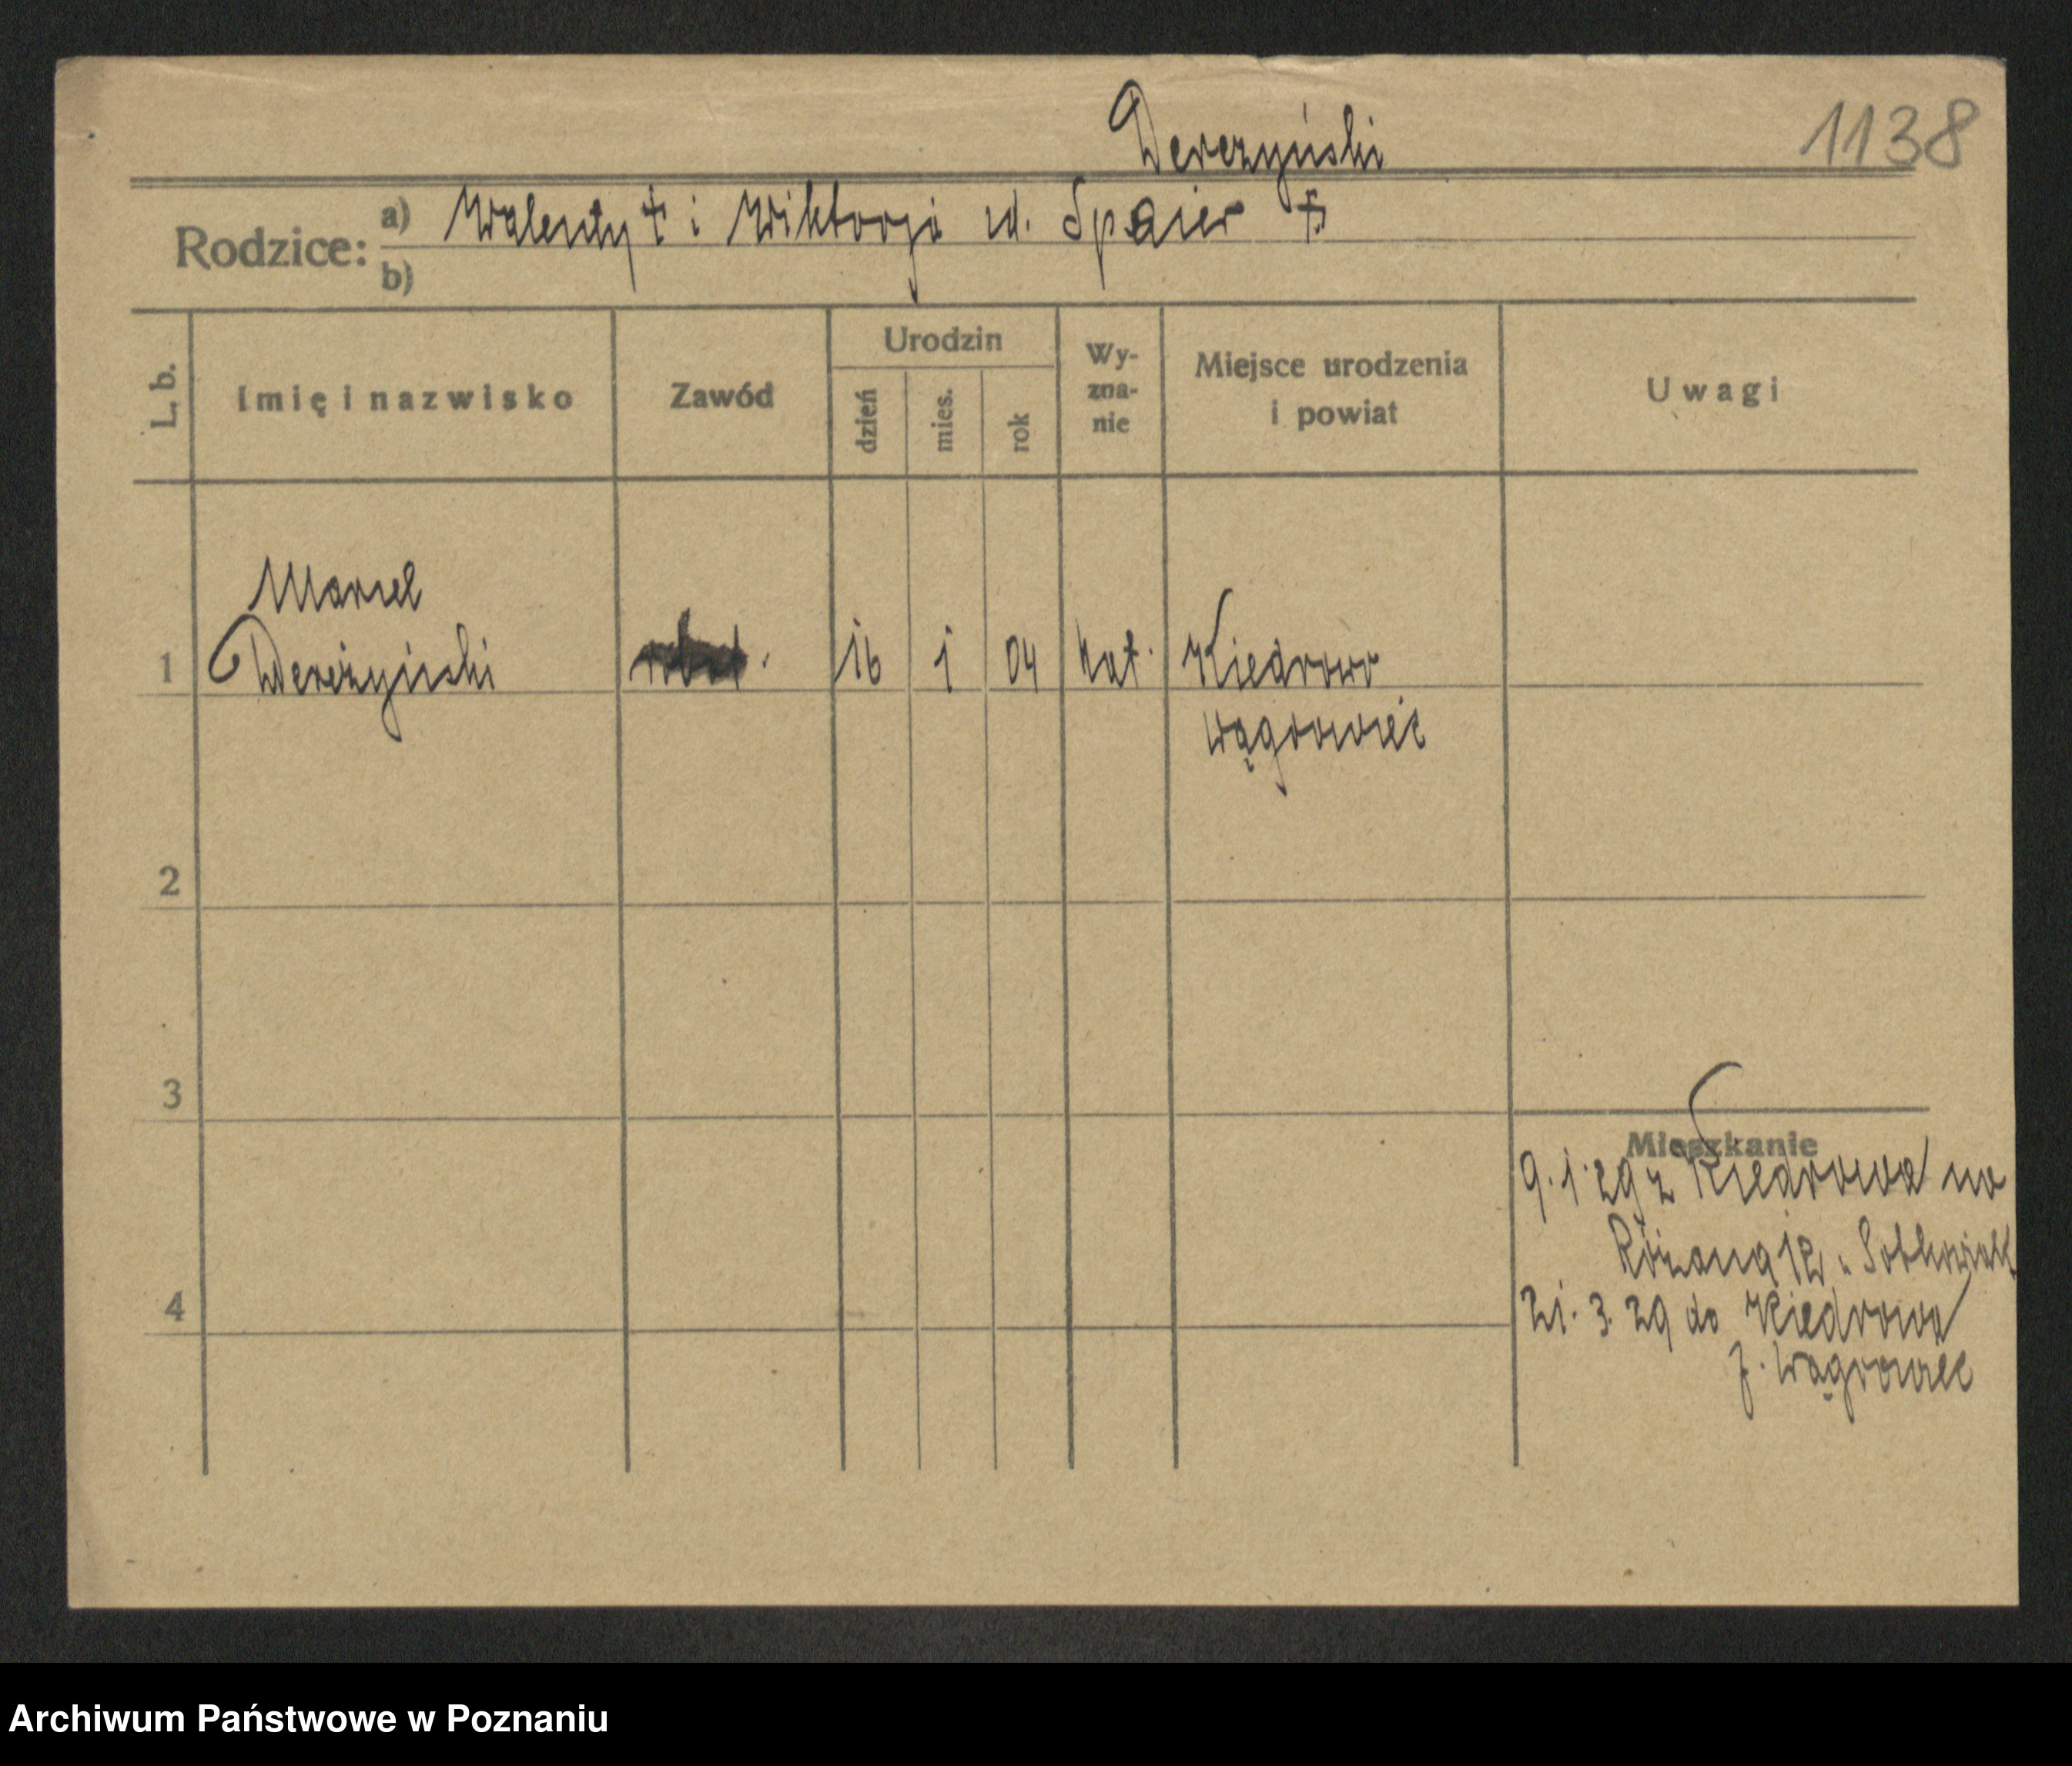 Dereżyński
1138
Rodzice: a) Walenty † i Wiktorja ur. Spaier †
b)
L. b. Imię i nazwisko Zawód Urodzin dzień mies. rok Wyzna-nie Miejsce urodzenia i powiat Uwagi
Marcel
1 Dereżyński robot. 16 1 04 kat. Kiedrowo
Wągrowiec
2
3
Mieszkanie
9. 1. 29 z Kiedrowa na
Różana 12
4
21. 3. 29 do Kiedrowa
p. Wągrowiec
Archiwum Państwowe w Poznaniu